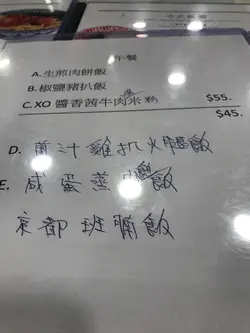 午餐
A.生煎肉餅飯
B.椒鹽豬扒飯
C.XO 醬香茜牛肉米粉
$55.
$45.
D. 蔥汁雞扒火腩飯
E. 咸蛋蒸 飯
京都班腩飯